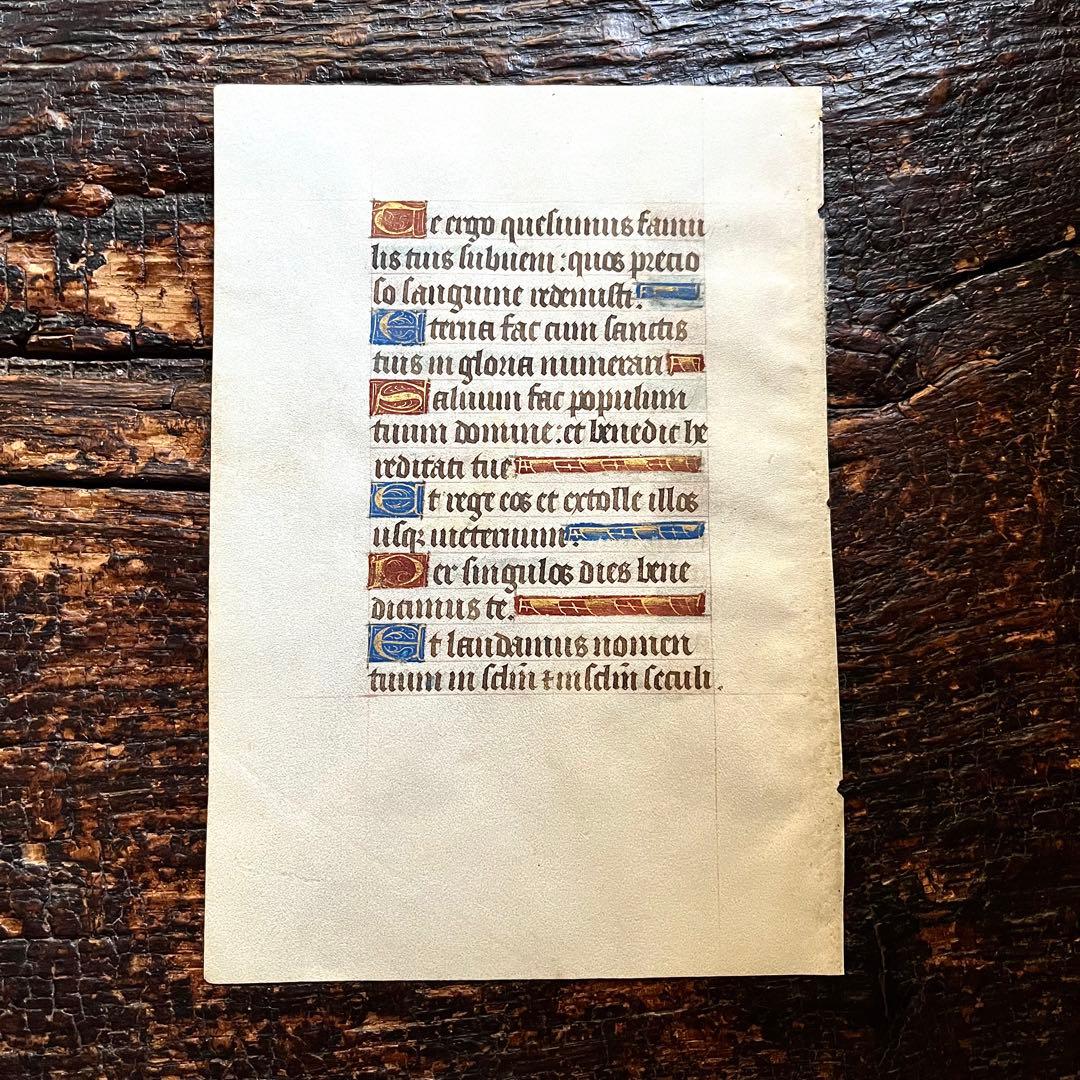 Te ergo quesumus famu
lis tuis subueni : quos precio
so sanguine redemisti.
Eterna fac cum sanctis
tuis in gloria numerari
Saluum fac populum
tuum domine : et benedic he
reditati tue
Et rege eos et extolle illos
usqꝫ ineternum.
Per singulos dies bene
dicimus te.
Et laudamus nomen
tuum in sclm̄ ⁊ in sclm̄ seculi.